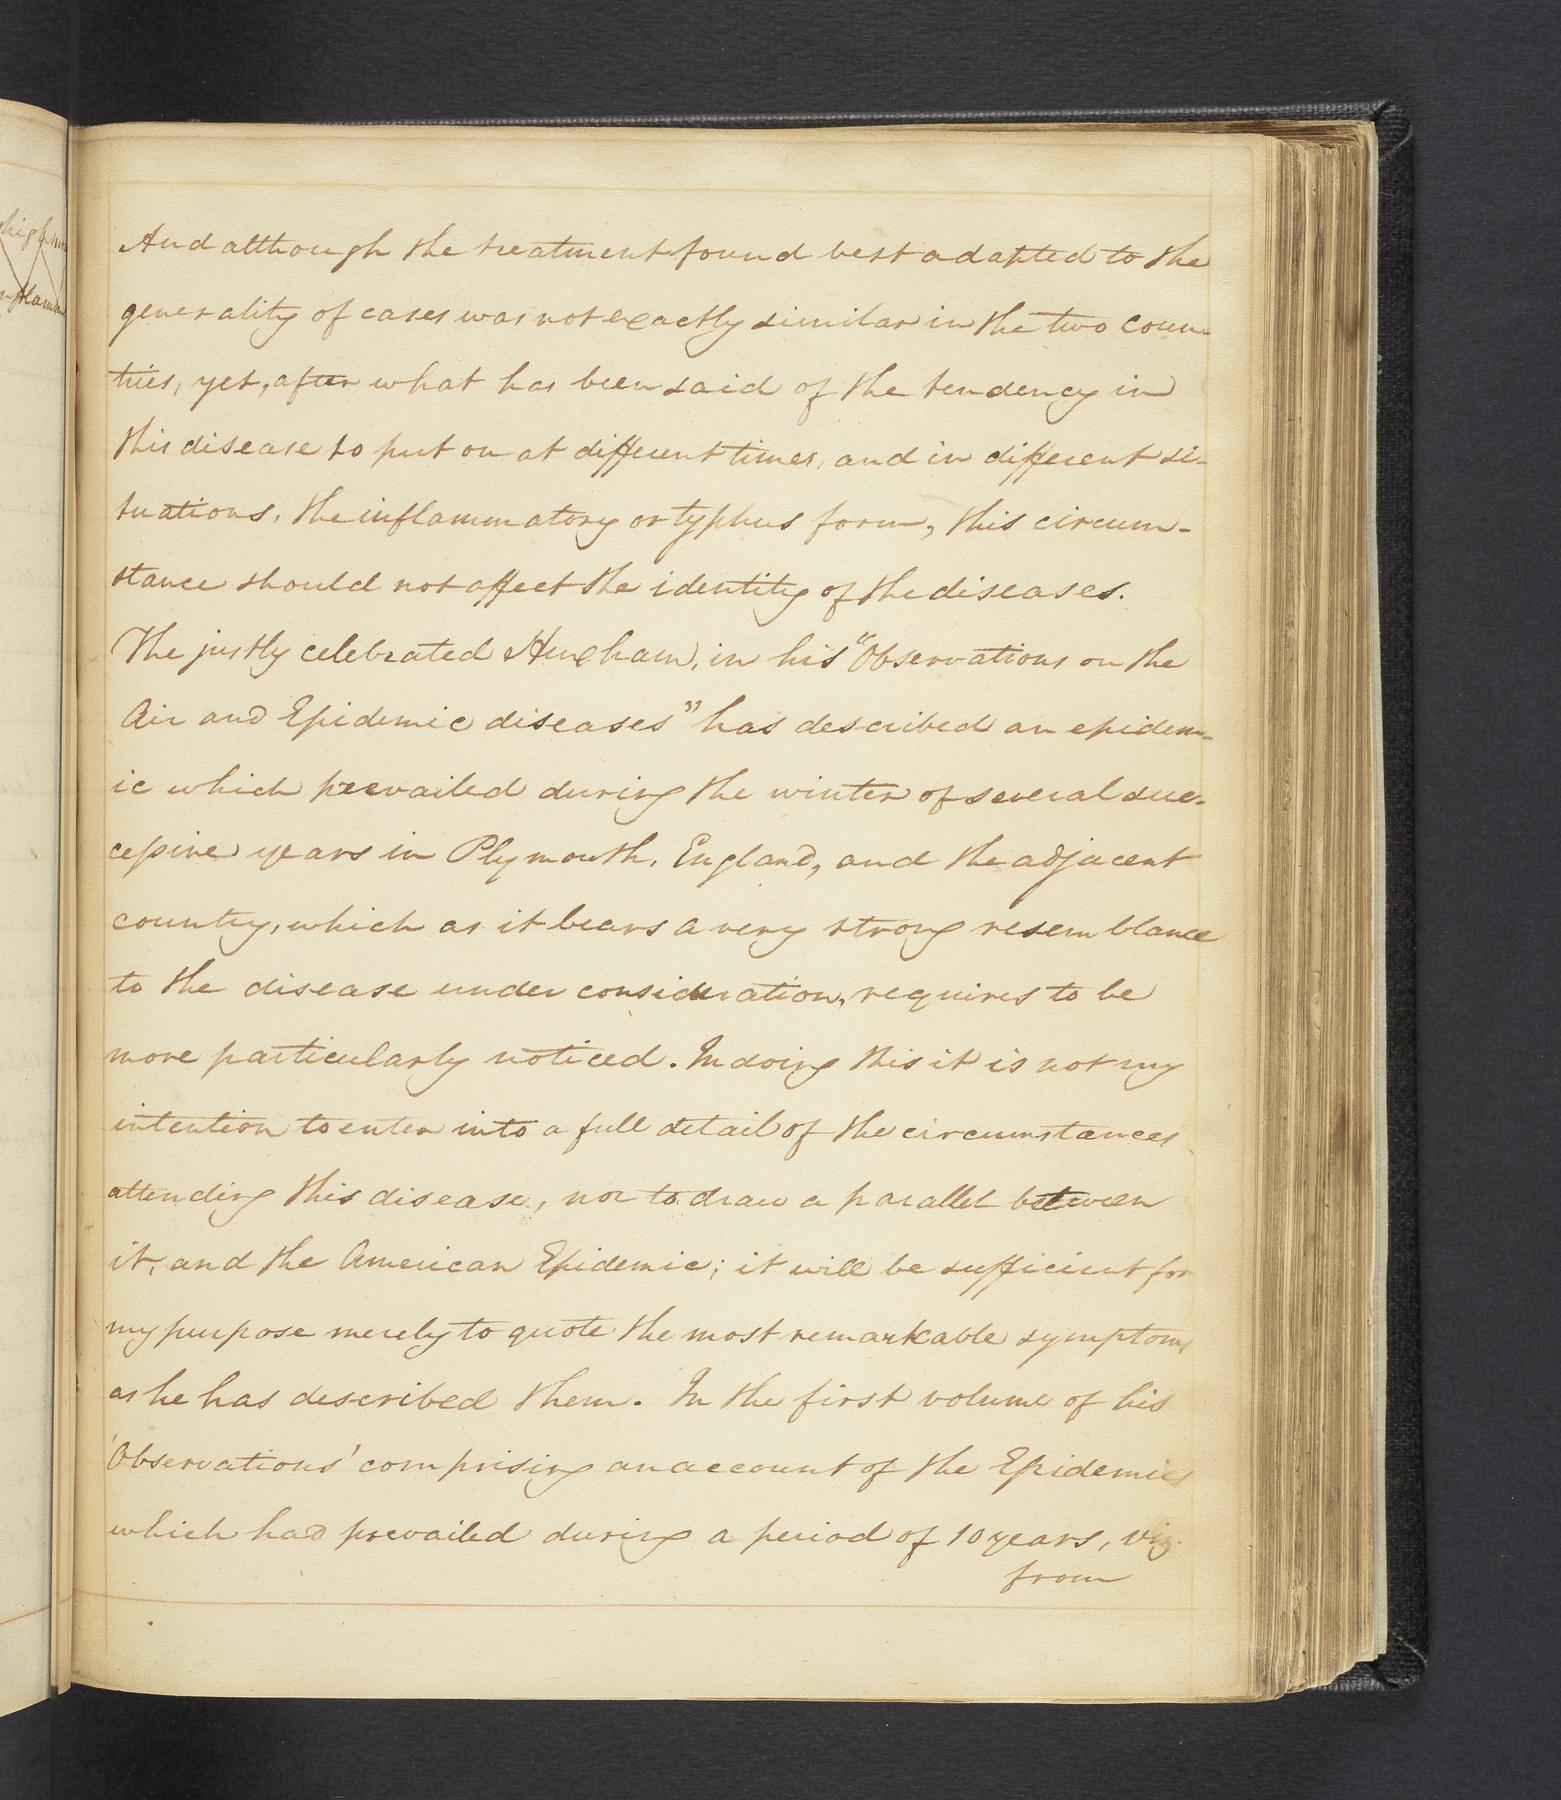 And although the treatment found best adapted to the
generality of cases was not exactly similar in the two coun
tries, yet, after what has been said of the tendency in
this disease to put on at different times, and in different si-
tuations, the inflammatory or typhus form, this circum-
stance should not affect the identity of the diseases.
The justly celebrated Huxham, in his "Observations on the
Air and Epidemic diseases" has described an epidem-
ic which prevailed during the winter of several suc-
cessive years in Plymouth, England, and the adjacent
country, which as it bears a very strong resemblance
to the disease under consideration, requires to be
more particularly noticed. In doing this it is not my
intention to enter into a full detail of the circumstances
attending this disease, nor to draw a parallel between
it, and the American Epidemic; it will be sufficient for
my purpose merely to quote the most remarkable symptoms
as he has described them. In the first volume of his
'Observations' comprising an account of the Epidemics
which had prevailed during a period of 10 years, viz.
from